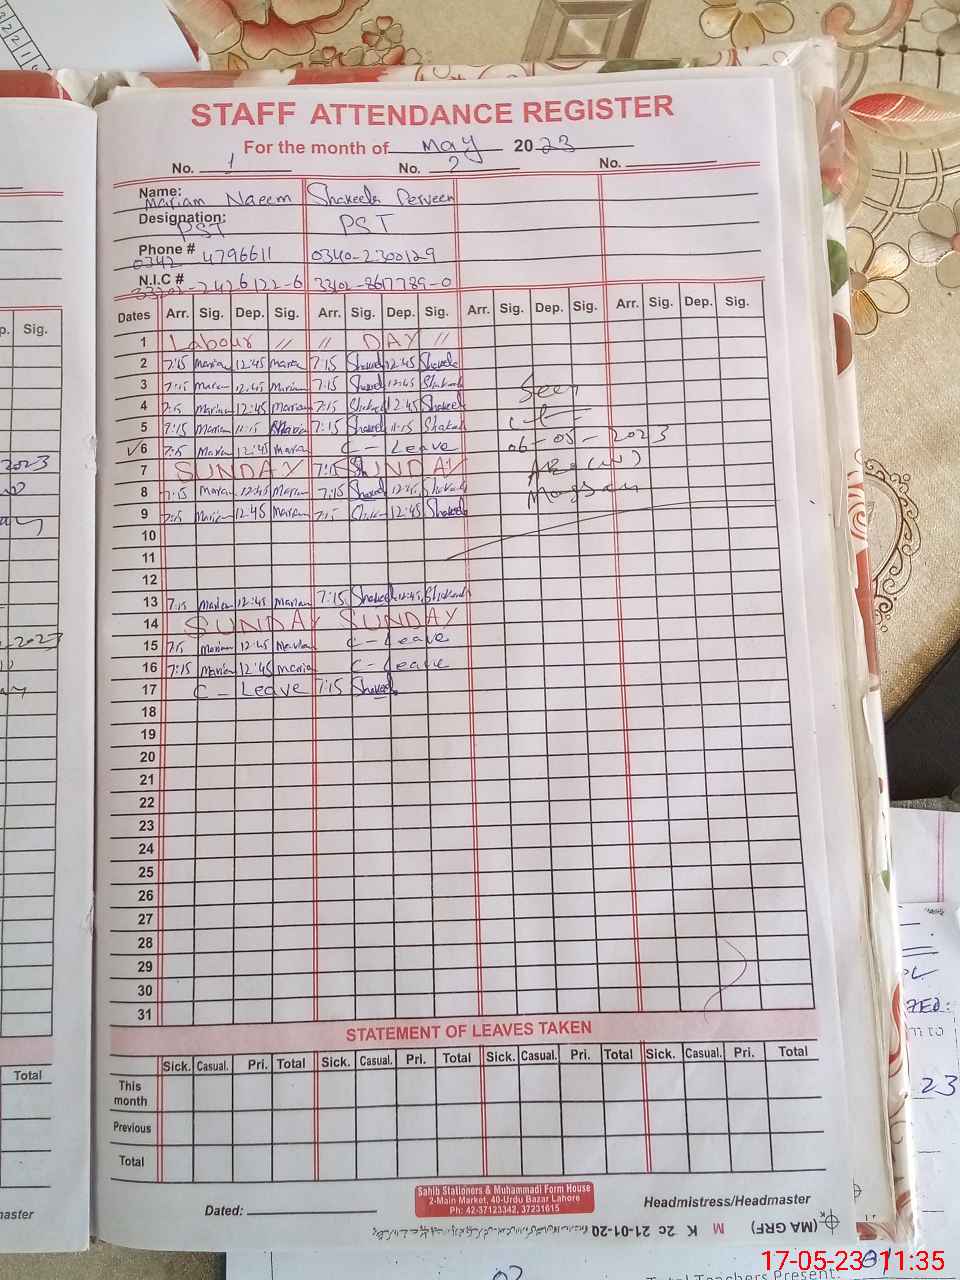 STAFF ATTENDANCE REGISTER
For the month of May 2023
No. 1 No. 2 No.
Name: Mariam Naeem Shakeela Perveen
Designation: PST PST
Phone # 0342 4796611 0340-2300129
N.I.C # 33202-2426122-6 3302-8617789-0
Dates Arr. Sig. Dep. Sig. Arr. Sig. Dep. Sig. Arr. Sig. Dep. Sig. Arr. Sig. Dep. Sig.
1 Labour // // DAY //
2 7:15 Maria 12:45 Maria 7:15 Shakeel 12:45 Shakeela
3 7:15 Mariam 12:45 Mariam 7:15 Shakeel 12:45 Shakeela
4 7:15 Mariam 12:45 Mariam 7:15 Shakeel 12:45 Shakeela
5 7:15 Mariam 11:15 Maria 7:15 Shakeel 11:15 Shakeel
6 7:15 Maria 12:45 Maria C - Leave
7 SUNDAY 7:15 SUNDAY
8 7:15 Maria 12:45 Mariam 7:15 Shakeel 12:45 Shakeela
9 7:15 Maria 12:45 Mariam 7:15 Shakeel 12:45 Shakeela
Seen
06-05-2023
10
11
12
13 7:15 Mariam 12:45 Mariam 7:15 Shakeel 12:45 Shakeela
14 SUNDAY SUNDAY
15 7:15 Mariam 12:45 Maria C - Leave
16 7:15 Maria 12:45 Maria C - Leave
17 C - Leave 7:15 Shakeel
18
19
20
21
22
23
24
25
26
27
28
29
30
31
STATEMENT OF LEAVES TAKEN
Sick. Casual. Pri. Total Sick. Casual. Pri. Total Sick. Casual. Pri. Total Sick. Casual. Pri. Total
This month
Previous
Total
Dated:
Sahib Stationers & Muhammadi Form House
2-Main Market, 40-Urdu Bazar Lahore
Ph: 42-37123342, 37231615
Headmistress/Headmaster
(MA GRF) M K 2c 21-01-20
p. Sig.
2023
2023
Total
master
23
Total Teachers Present:
17-05-23 11:35